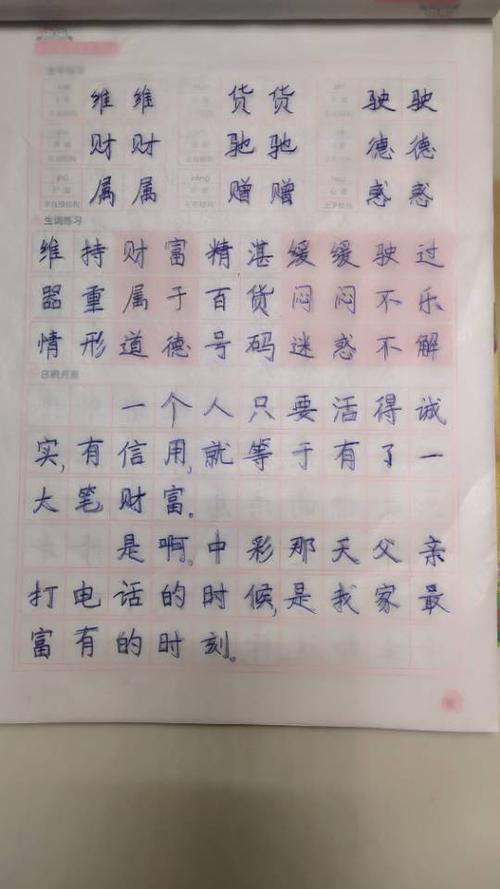 维 维 货 货 驶 驶
财 财 驰 驰 德 德
属 属 赠 赠 惑 惑
生词练习
维持财富精湛缓缓驶过
器重属于百货闷闷不乐
情形道德号码迷惑不解
日积月累
一个人只要活得诚
实,有信用,就等于有了一
大笔财富。
是啊。中彩那天父亲
打电话的时候,是我家最
富有的时刻。